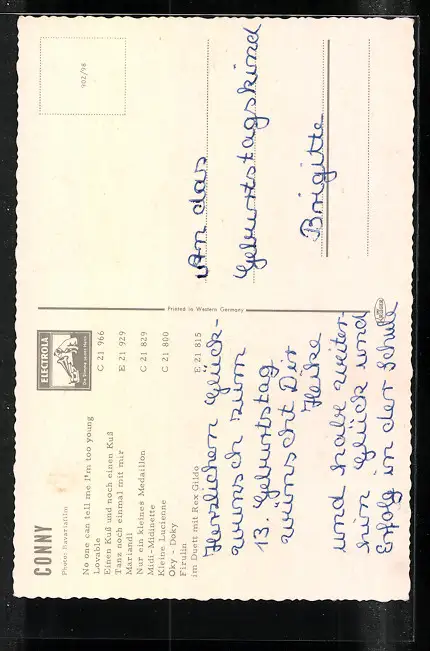 CONNY
Photo: Bavariafilm
No one can tell me I'm too young
Lovable
C 21 966
Einen Kuß und noch einen Kuß
Tanz noch einmal mit mir
E 21 929
Mariandl
Nur ein kleines Medaillon
C 21 829
Midi-Midinette
Kleine Lucienne
C 21 800
Oky - Doky
Firulin
im Duett mit Rex Gildo
E 21 815
ELECTROLA
Herzlichen Glück-
wunsch zum
13. Geburtstag
wünscht Dir
Heike
und habe weiter-
hin Glück und
Erfolg in der Schule
Printed in Western Germany
902/98
An das
Geburtstagskind
Brigitte